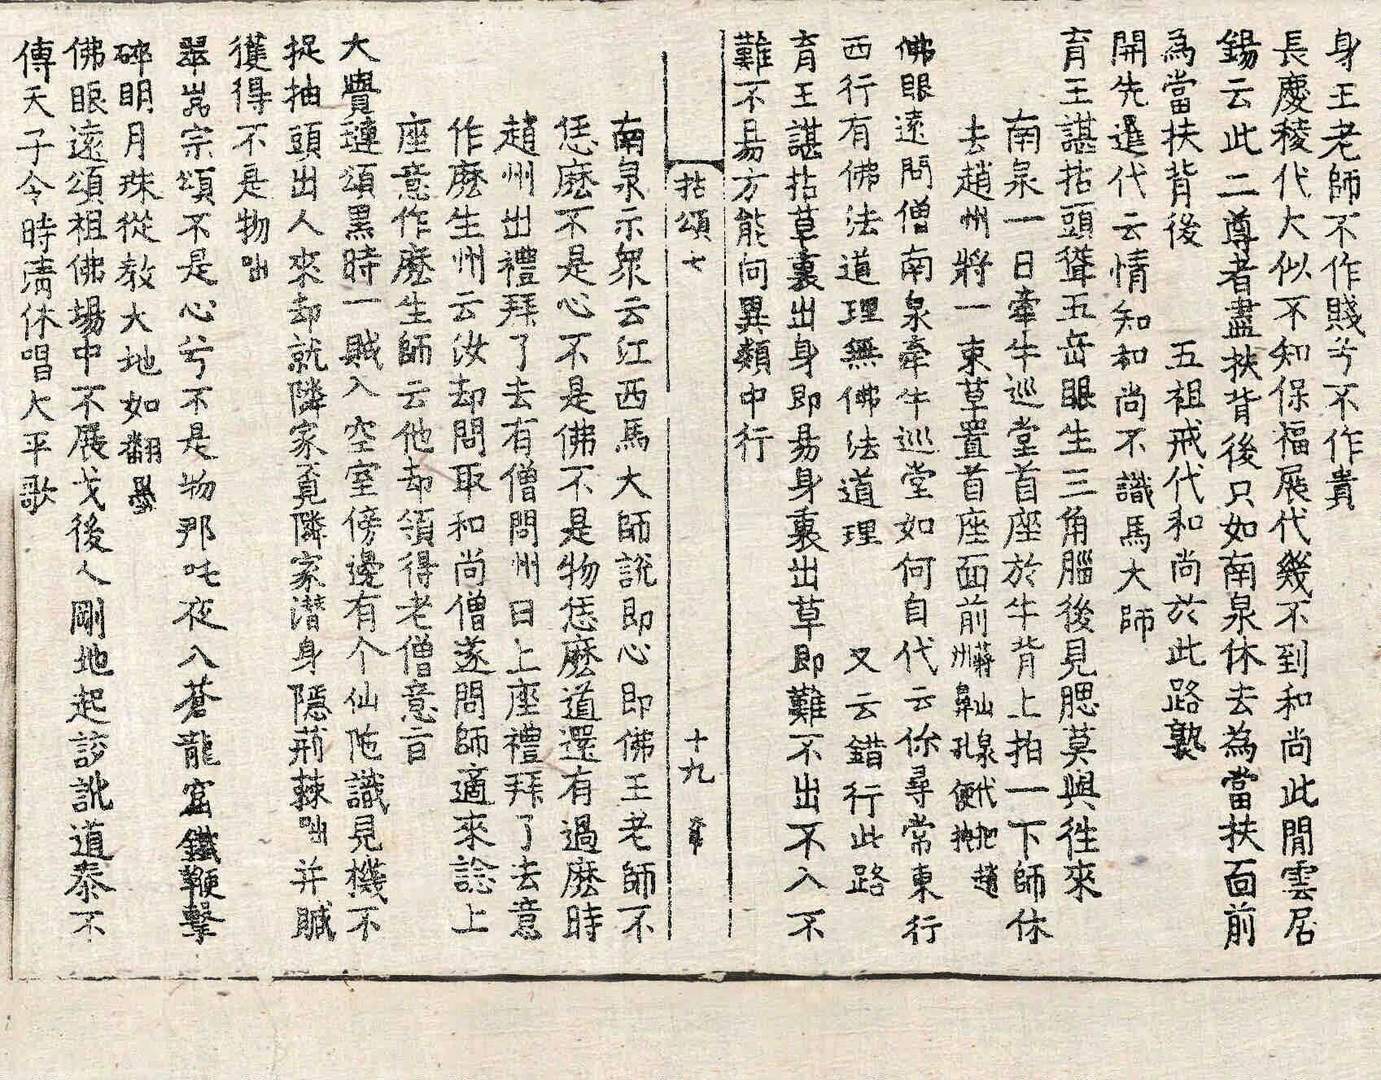 身王老師不作賤兮不作貴
長慶稜代大似不知保福展代幾不到和尚此閒雲居
錫云此二尊者盡扶背後只如南泉休去為當扶面前
為當扶背後　五祖戒代和尚於此路熟
開先暹代云情知和尚不識馬大師
育王諶拈頭聳五岳眼生三角腦後見腮莫與往來
南泉一日牽牛巡堂首座於牛背上拍一下師休
去趙州將一束草置首座面前蔣山泉代把趙州鼻孔便拽
佛眼遠問僧南泉牽牛巡堂如何自代云你尋常東行
西行有佛法道理無佛法道理　又云錯行此路
育王諶拈草裏出身即易身裏出草即難不出不入不
難不易方能向異類中行
拈頌七　十九
南泉示衆云江西馬大師説即心即佛王老師不
恁麽不是心不是佛不是物恁麽道還有過麽時
趙州出禮拜了去有僧問州曰上座禮拜了去意
作麽生州云汝却問取和尚僧遂問師適來諗上
座意作麽生師云他却領得老僧意旨
大覺璉頌黒時一賊入空室傍邊有个仙陁識見機不
捉抽頭出人來却就隣家覔隣家潛身隱荊棘咄并贓
獲得不是物咄
翠嵓宗頌不是心兮不是物那吒夜入蒼龍窟鐵鞭擊
碎明月珠從教大地如翻墨
佛眼遠頌祖佛場中不展戈後人剛地起誵訛道泰不
傳天子令時清休唱大平歌